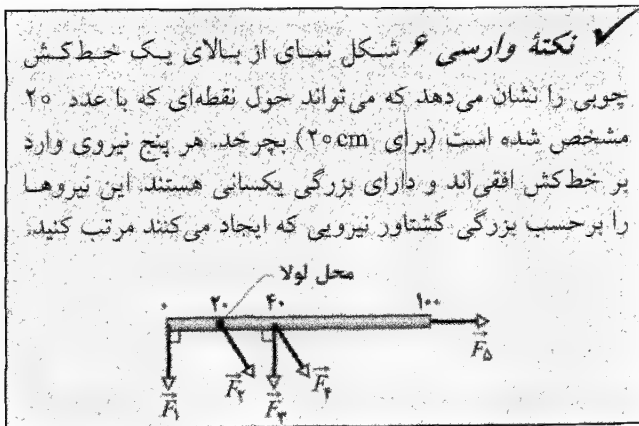 نکتهٔ وارسی ۶ شکل نمای از بالای یک خط‌کش
چوبی را نشان می‌دهد که می‌تواند حول نقطه‌ای که با عدد ۲۰
مشخص شده است (برای ۲۰cm) بچرخد. هر پنج نیروی وارد
بر خط‌کش افقی‌اند و دارای بزرگی یکسانی هستند. این نیروها
را برحسب بزرگی گشتاور نیرویی که ایجاد می‌کنند مرتب کنید.
محل لولا
۰ ۲۰ ۴۰ ۱۰۰
F۱ F۲ F۳ F۴ F۵